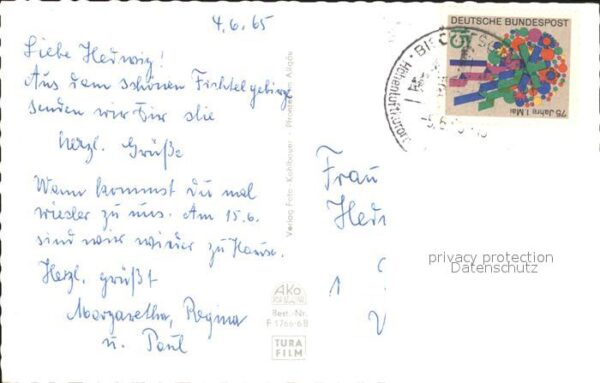 4.6.65
Liebe Hedwig!
Aus dem schönen Fichtelgebirge
senden wir Dir die
herzl. Grüße
Wann kommst Du mal
wieder zu uns. Am 15.6.
sind wir wieder zu Hause.
Herzl. grüßt
Margaretha, Regina
u. Paul
Verlag Foto Kohlbauer, Pfronten Allgäu
Ako
Best.-Nr.
F 1766-6B
TURA
FILM
DEUTSCHE BUNDESPOST
15
75 Jahre 1. Mai
Höhenluftkurort
-5.6.
Frau
Hed
1
privacy protection
Datenschutz